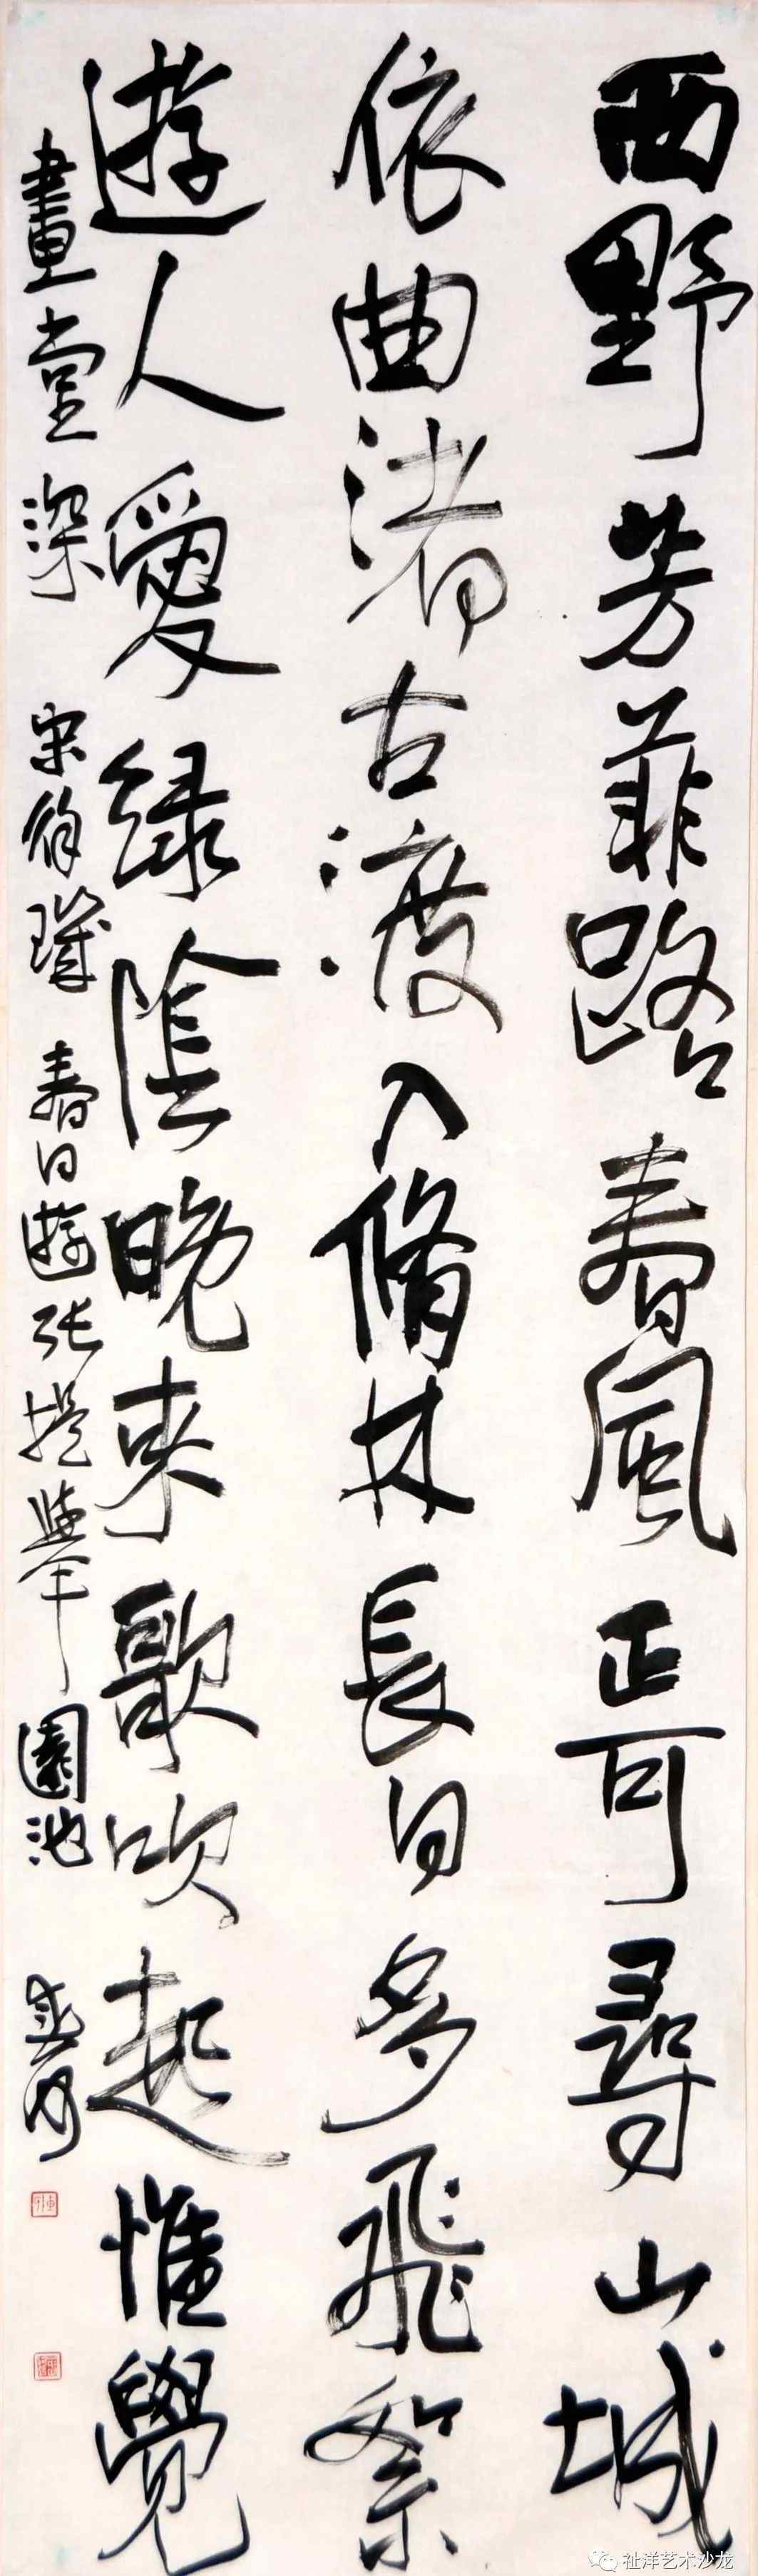 西野芳菲路春風正可尋山城
依曲渚古渡入脩林長日多飛絮
遊人愛綠陰晚来歌吹起惟覺
畫堂深 宋徐璣春日遊張提舉園池
祉洋艺术沙龙